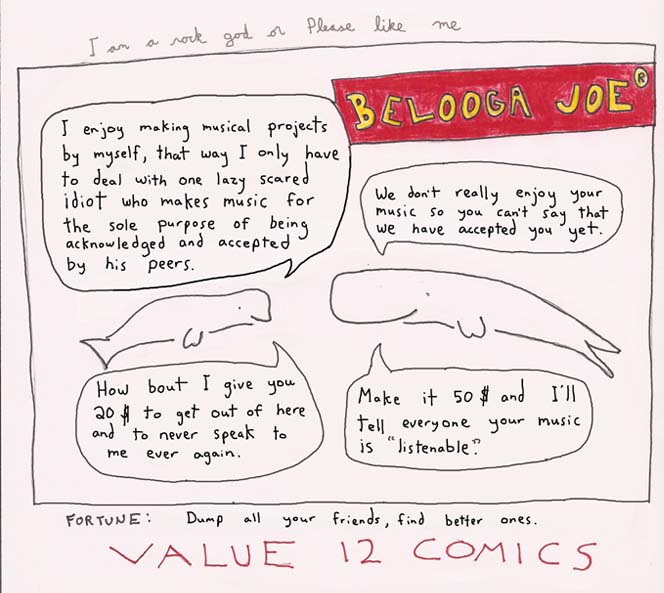 I am a rock god or Please like me
BELOOGA JOE®
I enjoy making musical projects
by myself, that way I only have
to deal with one lazy scared
idiot who makes music for
the sole purpose of being
acknowledged and accepted
by his peers.
We don't really enjoy your
music so you can't say that
we have accepted you yet.
How bout I give you
20 $ to get out of here
and to never speak to
me ever again.
Make it 50 $ and I'll
tell everyone your music
is "listenable".
FORTUNE: Dump all your friends, find better ones.
VALUE 12 COMICS